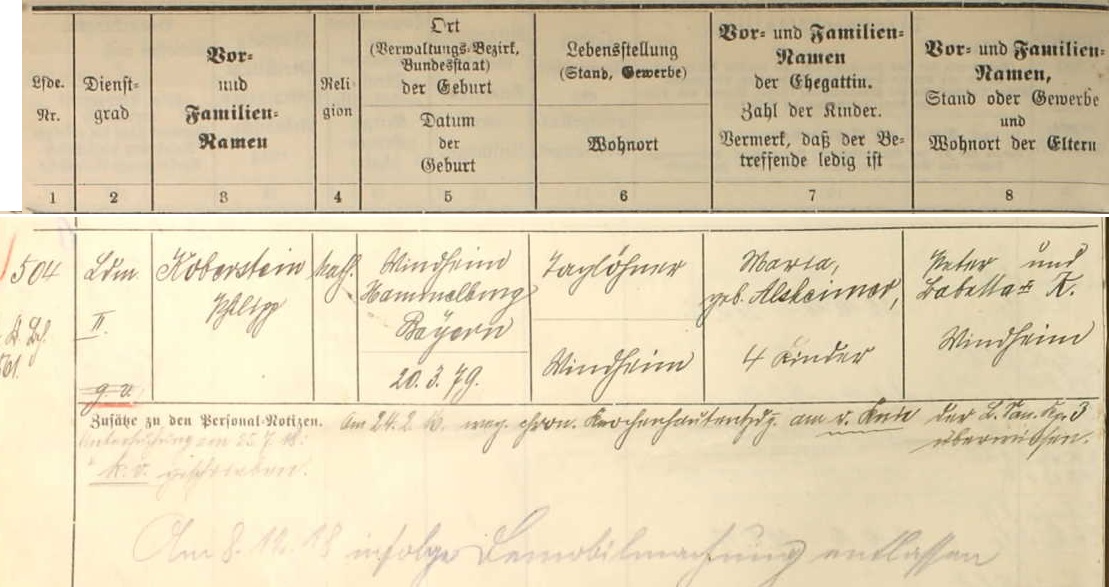 Lfde.
Nr.
Dienst-
grad
Vor-
und
Familien-
Namen
Reli-
gion
Ort
(Verwaltungs-Bezirk,
Bundesstaat)
der Geburt
Datum
der
Geburt
Lebensstellung
(Stand, Gewerbe)
Wohnort
Vor- und Familien-
Namen
der Ehegattin.
Zahl der Kinder.
Vermerk, daß der Be-
treffende ledig ist
Vor- und Familien-
Namen,
Stand oder Gewerbe
und
Wohnort der Eltern
1 2 3 4 5 6 7 8
504
Ldm
II.
g. v.
Koberstein
Philipp
kath.
Windheim
Hammelburg
Bayern
20.3.79.
Taglöhner
Windheim
Maria,
geb. Alsheimer,
4 Kinder
Peter und
Babetta K.
Windheim
Zusätze zu den Personal-Notizen. Am 24.2. weg. chron. Knochenhautentzdg. am r. Knie der 3
überwiesen.
k. v. geschrieben.
Am 8.12.18 infolge Demobilmachung entlassen